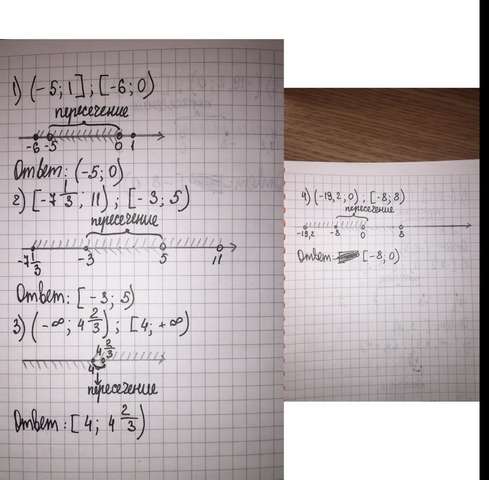 1) (-5; 1] ; [-6; 0)
пересечение
-6 -5 0 1
Ответ: (-5; 0)
2) [-7 1/3; 11) ; [-3; 5)
пересечение
-7 1/3 -3 5 11
Ответ: [-3; 5)
3) (-∞; 4 2/3) ; [4; +∞)
4 2/3
4
пересечение
Ответ: [4; 4 2/3)
4) (-19,2; 0) ; [-8; 8)
пересечение
-19,2 -8 0 8
Ответ [-8; 0)